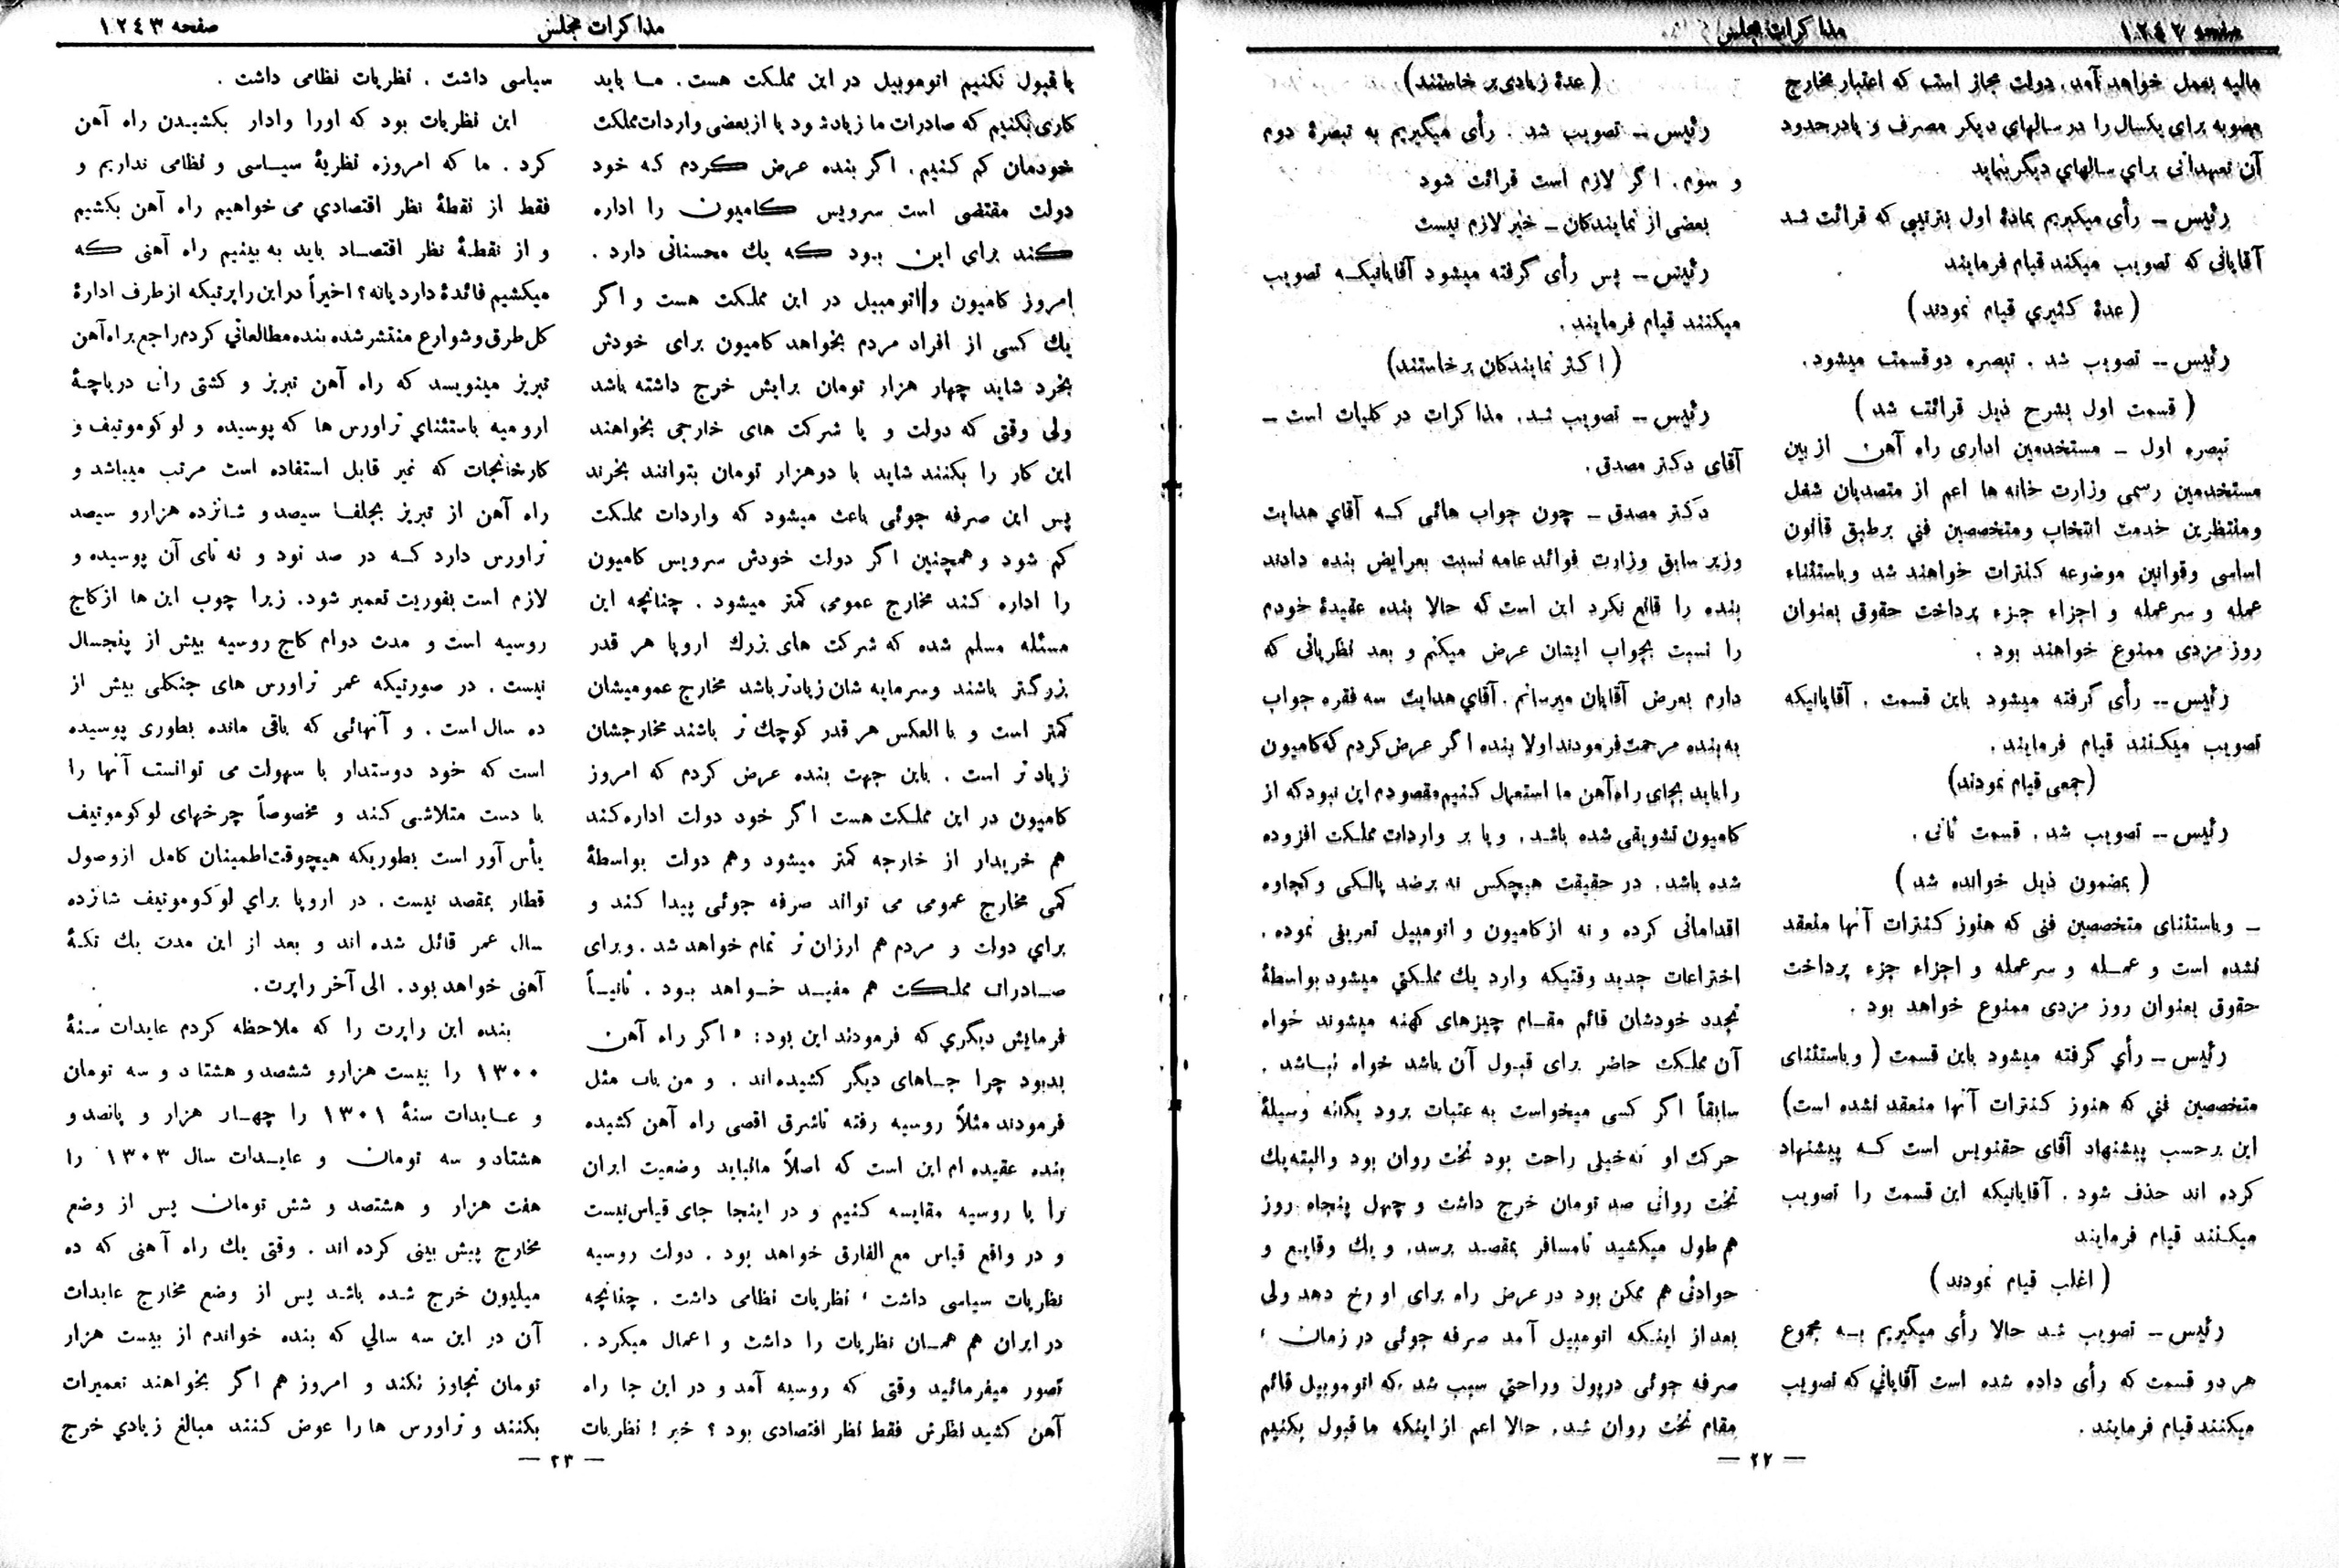 صفحه ۱۲۴۲
مذاکرات مجلس
مالیه بعمل خواهد آمد. دولت مجاز است که اعتبار مخارج
مصوبه برای یکسال را در سالهای دیگر مصرف و یا در حدود
آن تعهداتی برای سالهای دیگر بنماید
رئیس – رأی میگیریم بمادهٔ اول بترتیبی که قرائت شد
آقایانی که تصویب میکند قیام فرمایند
(عدهٔ کثیری قیام نمودند)
رئیس – تصویب شد . تبصره دو قسمت میشود.
(قسمت اول بشرح ذیل قرائت شد)
تبصره اول – مستخدمین اداری راه آهن از بین
مستخدمین رسمی وزارت خانه ها اعم از متصدیان شغل
ومنتظرین خدمت انتخاب ومتخصصین فنی برطبق قانون
اساسی وقوانین موضوعه کنترات خواهند شد و باستثناء
عمله و سرعمله و اجزاء جزء پرداخت حقوق بعنوان
روز مزدی ممنوع خواهند بود .
رئیس – رأی گرفته میشود باین قسمت . آقایانیکه
تصویب میکنند قیام فرمایند.
(جمعی قیام نمودند)
رئیس – تصویب شد. قسمت ثانی .
(بمضمون ذیل خوانده شد)
– و باستثنای متخصصین فنی که هنوز کنترات آنها منعقد
نشده است و عمله و سرعمله و اجزاء جزء پرداخت
حقوق بعنوان روز مزدی ممنوع خواهد بود .
رئیس – رأی گرفته میشود باین قسمت ( و باستثنای
متخصصین فنی که هنوز کنترات آنها منعقد نشده است)
این برحسب پیشنهاد آقای حقنویس است که پیشنهاد
کرده اند حذف شود . آقایانیکه این قسمت را تصویب
میکنند قیام فرمایند
(اغلب قیام نمودند)
رئیس – تصویب شد حالا رأی میگیریم به مجموع
هر دو قسمت که رأی داده شده است آقایانی که تصویب
میکنند قیام فرمایند .
(عدهٔ زیادی برخاستند)
رئیس – تصویب شد . رأی میگیریم به تبصرهٔ دوم
و سوم. اگر لازم است قرائت شود
بعضی از نمایندگان – خیر لازم نیست
رئیس – پس رأی گرفته میشود آقایانیکه تصویب
میکنند قیام فرمایند.
(اکثر نمایندگان برخاستند)
رئیس – تصویب شد. مذاکرات در کلیات است –
آقای دکتر مصدق.
دکتر مصدق – چون جواب هائی که آقای هدایت
وزیر سابق وزارت فوائد عامه نسبت بعرایض بنده دادند
بنده را قانع نکرد این است که حالا بنده عقیدهٔ خودم
را نسبت بجواب ایشان عرض میکنم و بعد نظریاتی که
دارم بعرض آقایان میرسانم. آقای هدایت سه فقره جواب
به بنده مرحمت فرمودند اولا بنده اگر عرض کردم که کامیون
را باید بجای راه آهن ما استعمال کنیم مقصودم این نبود که از
کامیون تشویقی شده باشد. و یا بر واردات مملکت افزوده
شده باشد. در حقیقت هیچکس نه برضد پالکی وکجاوه
اقداماتی کرده و نه از کامیون و اتومبیل تعریفی نموده .
اختراعات جدید وقتیکه وارد یك مملکتی میشود بواسطهٔ
تجدد خودشان قائم مقام چیزهای کهنه میشوند خواه
آن مملکت حاضر برای قبول آن باشد خواه نباشد .
سابقاً اگر کسی میخواست به عتبات برود یگانه وسیلهٔ
حرکت او که خیلی راحت بود تخت روان بود والبته یك
تخت روانی صد تومان خرج داشت و چهل پنجاه روز
هم طول میکشید تا مسافر بمقصد برسد. و یك وقایع و
حوادثی هم ممکن بود در عرض راه برای او رخ دهد ولی
بعد از اینکه اتومبیل آمد صرفه جوئی در زمان ،
صرفه جوئی درپول وراحتی سبب شد که اتوموبیل قائم
مقام تخت روان شد. حالا اعم از اینکه ما قبول بکنیم
– ۲۲ –
مذاکرات مجلس
صفحه ۱۲۴۳
یا قبول نکنیم اتوموبیل در این مملکت هست. ما باید
کاری بکنیم که صادرات ما زیاد شود یا از بعضی واردات مملکت
خودمان کم کنیم. اگر بنده عرض کردم که خود
دولت مقتضی است سرویس کامیون را اداره
کند برای این بود که یك محسناتی دارد .
امروز کامیون و اتومبیل در این مملکت هست و اگر
یك کسی از افراد مردم بخواهد کامیون برای خودش
بخرد شاید چهار هزار تومان برایش خرج داشته باشد
ولی وقتی که دولت و یا شرکت های خارجی بخواهند
این کار را بکنند شاید با دوهزار تومان بتوانند بخرند
پس این صرفه جوئی باعث میشود که واردات مملکت
کم شود و همچنین اگر دولت خودش سرویس کامیون
را اداره کند مخارج عمومی کمتر میشود . چنانچه این
مسئله مسلم شده که شرکت های بزرگ اروپا هر قدر
بزرگتر باشند وسرمایه شان زیادتر باشد مخارج عمومیشان
کمتر است و بالعکس هر قدر کوچك تر باشند مخارجشان
زیاد تر است . باین جهت بنده عرض کردم که امروز
کامیون در این مملکت هست اگر خود دولت اداره کند
هم خریدار از خارجه کمتر میشود وهم دولت بواسطهٔ
کمی مخارج عمومی می تواند صرفه جوئی پیدا کند و
برای دولت و مردم هم ارزان تر تمام خواهد شد . و برای
صادرات مملکت هم مفید خواهد بود . ثانیاً
فرمایش دیگری که فرمودند این بود: « اگر راه آهن
بدبود چرا جاهای دیگر کشیده اند . و من باب مثل
فرمودند مثلاً روسیه رفته تا شرق اقصی راه آهن کشیده
بنده عقیده ام این است که اصلاً ما نباید وضعیت ایران
را با روسیه مقایسه کنیم و در اینجا جای قیاس نیست
و در واقع قیاس مع الفارق خواهد بود . دولت روسیه
نظریات سیاسی داشت ، نظریات نظامی داشت . چنانچه
در ایران هم همان نظریات را داشت و اعمال میکرد .
تصور میفرمائید وقتی که روسیه آمد و در این جا راه
آهن کشید نظرش فقط نظر اقتصادی بود ؟ خیر ! نظریات
سیاسی داشت . نظریات نظامی داشت .
این نظریات بود که اورا وادار بکشیدن راه آهن
کرد . ما که امروزه نظریهٔ سیاسی و نظامی نداریم و
فقط از نقطهٔ نظر اقتصادی می خواهیم راه آهن بکشیم
و از نقطهٔ نظر اقتصاد باید به بینیم راه آهنی که
میکشیم فائده دارد یانه؟ اخیراً در این راپرتیکه ازطرف ادارهٔ
کل طرق وشوارع منتشر شده بنده مطالعاتی کردم راجع براه آهن
تبریز مینویسد که راه آهن تبریز و کشتی رانی دریاچهٔ
ارومیه باستثنای تراورس ها که پوسیده و لوکوموتیف و
کارخانجات که غیر قابل استفاده است مرتب میباشد و
راه آهن از تبریز بجلفا سیصد و شانزده هزار و سیصد
تراورس دارد که در صد نود و نه تای آن پوسیده و
لازم است بفوریت تعمیر شود. زیرا چوب این ها از کاج
روسیه است و مدت دوام کاج روسیه بیش از پنجسال
نیست . در صورتیکه عمر تراورس های جنگلی بیش از
ده سال است . و آنهائی که باقی مانده بطوری پوسیده
است که خود دوستدار با سهولت می توانست آنها را
با دست متلاشی کند و مخصوصاً چرخهای لوکوموتیف
یأس آور است بطوریکه هیچوقت اطمینان کامل ازوصول
قطار بمقصد نیست . در اروپا برای لوکوموتیف شانزده
سال عمر قائل شده اند و بعد از این مدت یك تکهٔ
آهنی خواهد بود. الی آخر راپرت.
بنده این راپرت را که ملاحظه کردم عایدات سنهٔ
۱۳۰۰ را بیست هزارو ششصد و هشتاد و سه تومان
و عایدات سنهٔ ۱۳۰۱ را چهار هزار و پانصد و
هشتاد و سه تومان و عایدات سال ۱۳۰۳ را
هفت هزار و هشتصد و شش تومان پس از وضع
مخارج پیش بینی کرده اند . وقتی یك راه آهنی که ده
میلیون خرج شده باشد پس از وضع مخارج عایدات
آن در این سه سالی که بنده خواندم از بیست هزار
تومان تجاوز نکند و امروز هم اگر بخواهند تعمیرات
بکنند و تراورس ها را عوض کنند مبالغ زیادی خرج
– ۲۳ –